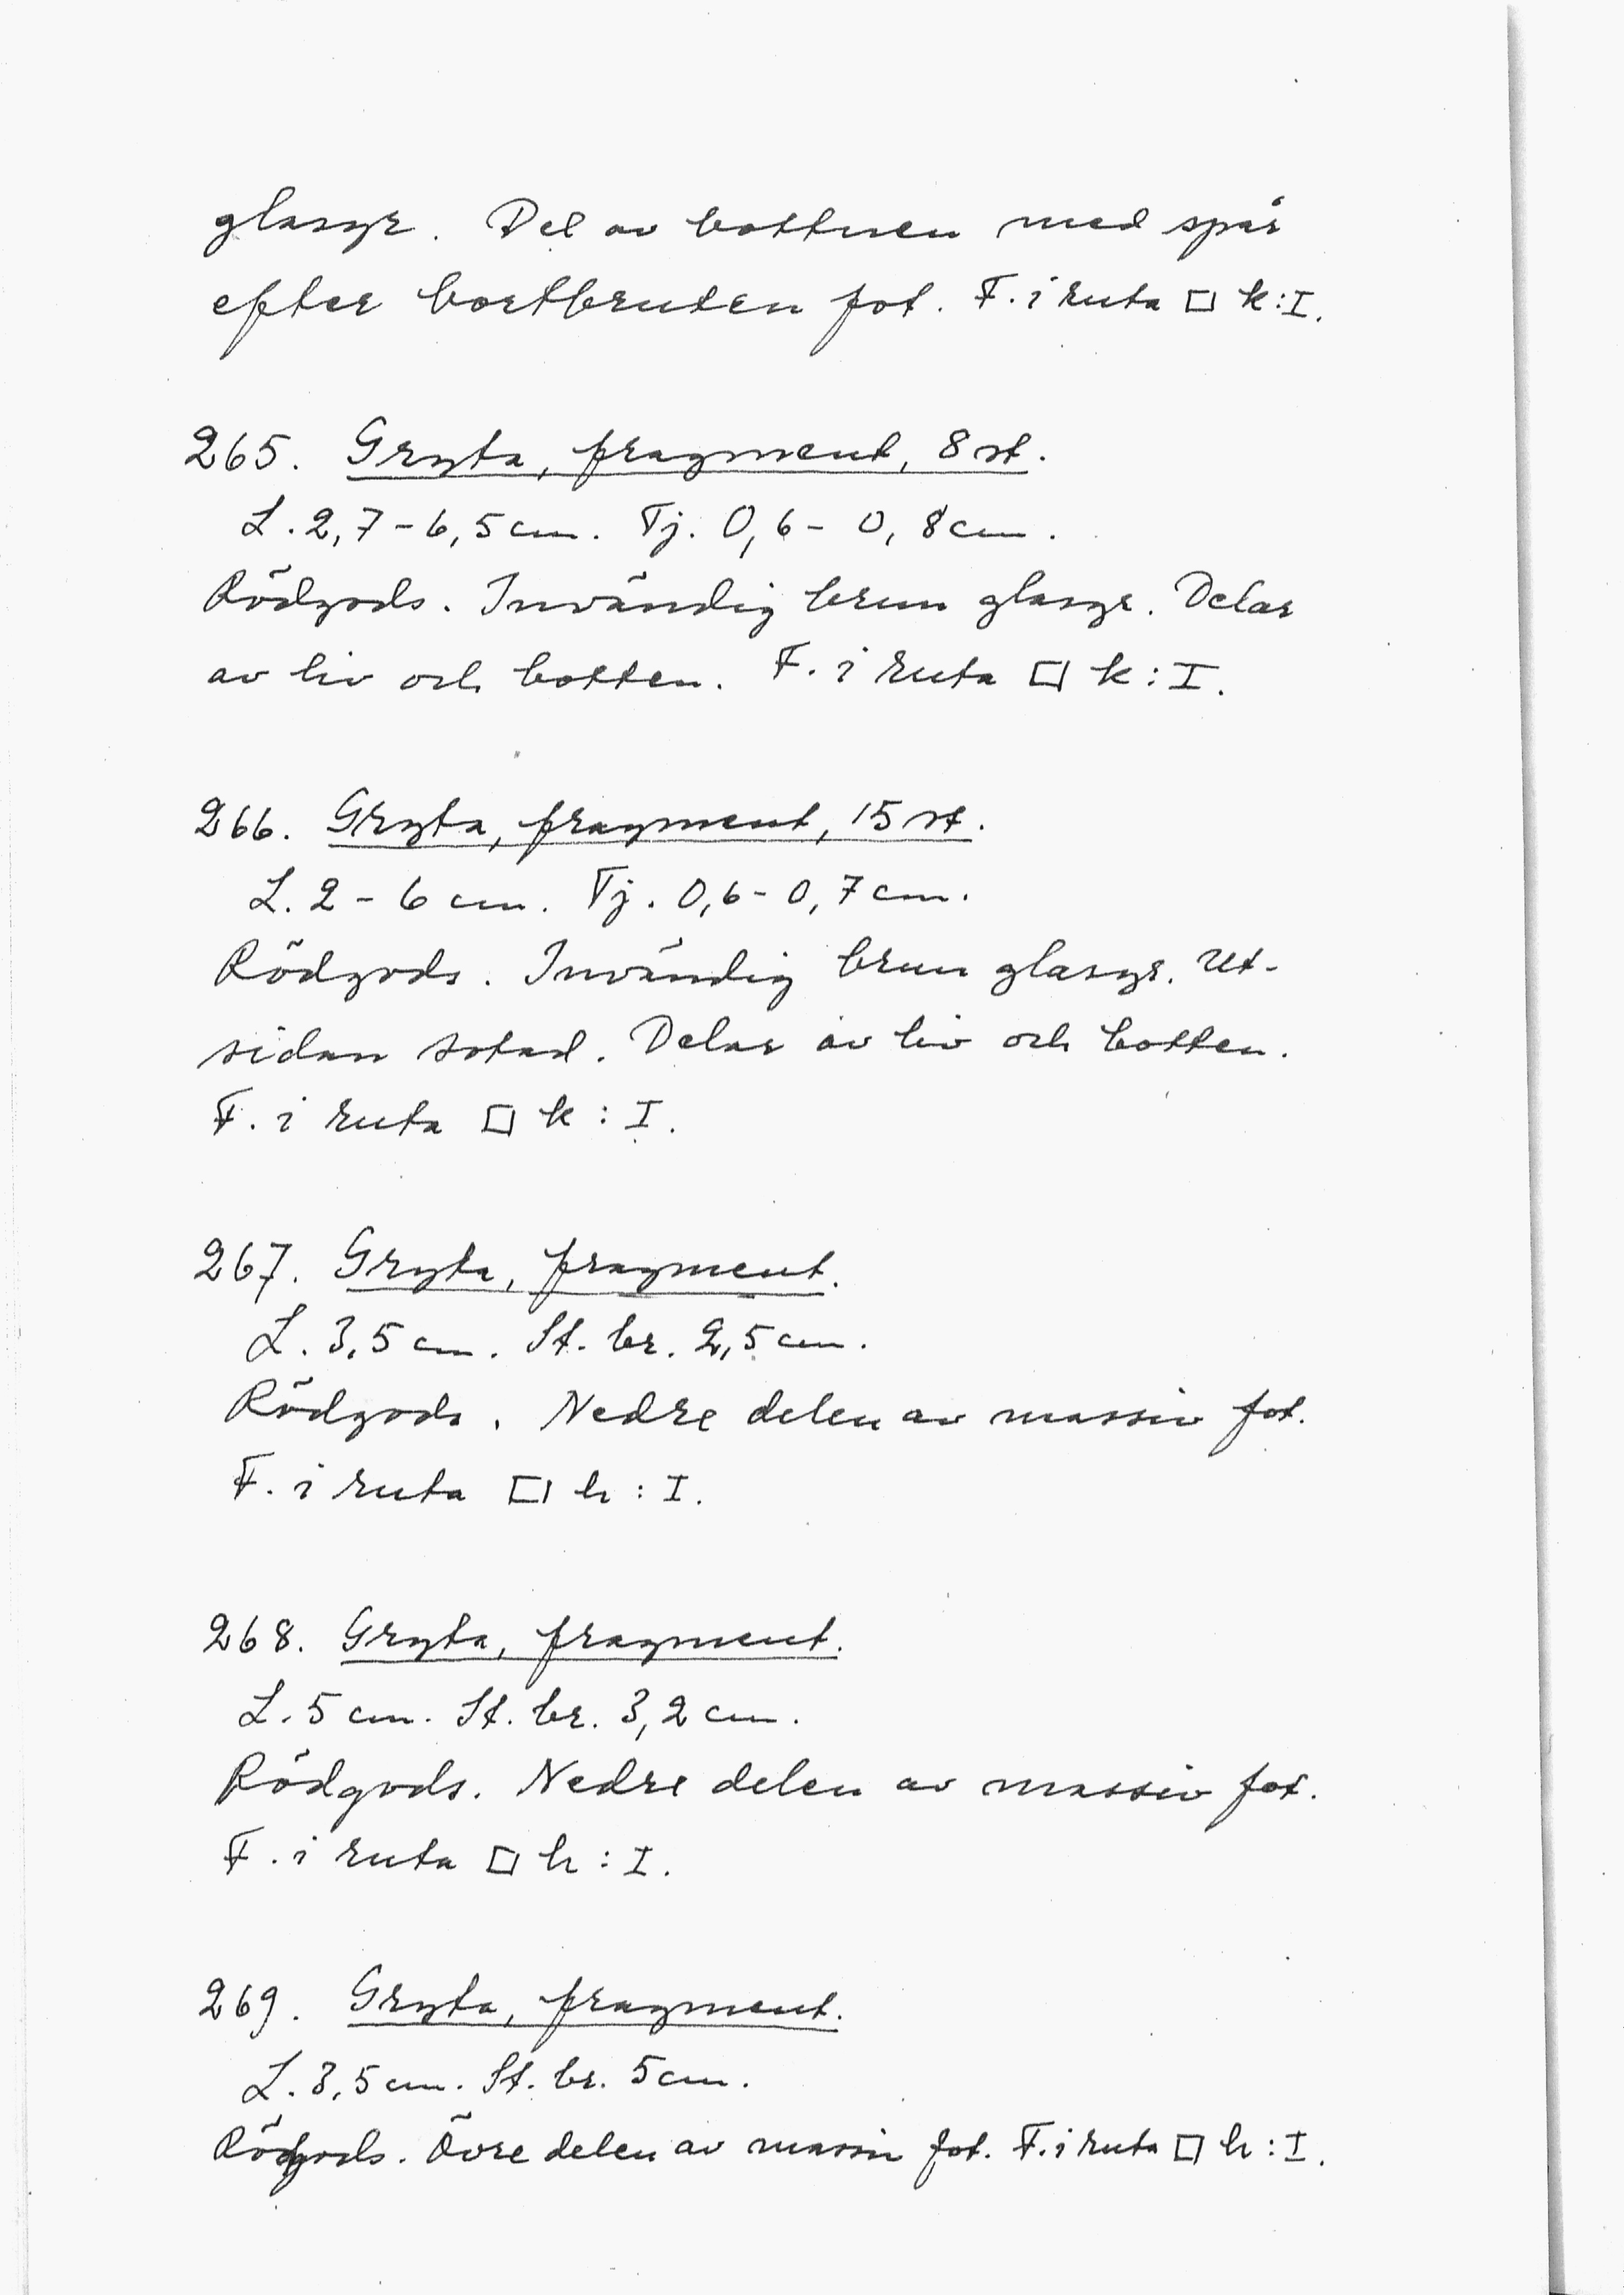 glasyr. Del av bottnen med spår
efter bortbruten fot. F. i ruta □ k:I.
265. Gryta, fragment, 8 st.
L. 2,7-6,5 cm. Tj. 0,6-0,8 cm.
Rödgods. Invändig brun glasyr. Delar
av liv och botten. F. i ruta □ k:I.
266. Gryta, fragment, 15 st.
L. 2-6 cm. Tj. 0,6-0,7 cm.
Rödgods. Invändig brun glasyr. Ut-
sidan sotad. Delar av liv och botten.
F. i ruta □ k:I.
267. Gryta, fragment.
L. 3,5 cm. St. br. 2,5 cm.
Rödgods. Nedre delen av massiv fot.
F. i ruta □ h:I.
268. Gryta, fragment.
L. 5 cm. St. br. 3,2 cm.
Rödgods. Nedre delen av massiv fot.
F. i ruta □ h:I.
269. Gryta, fragment.
L. 3,5 cm. St. br. 5 cm.
Rödgods. Övre delen av massiv fot. F. i ruta □ h:I.